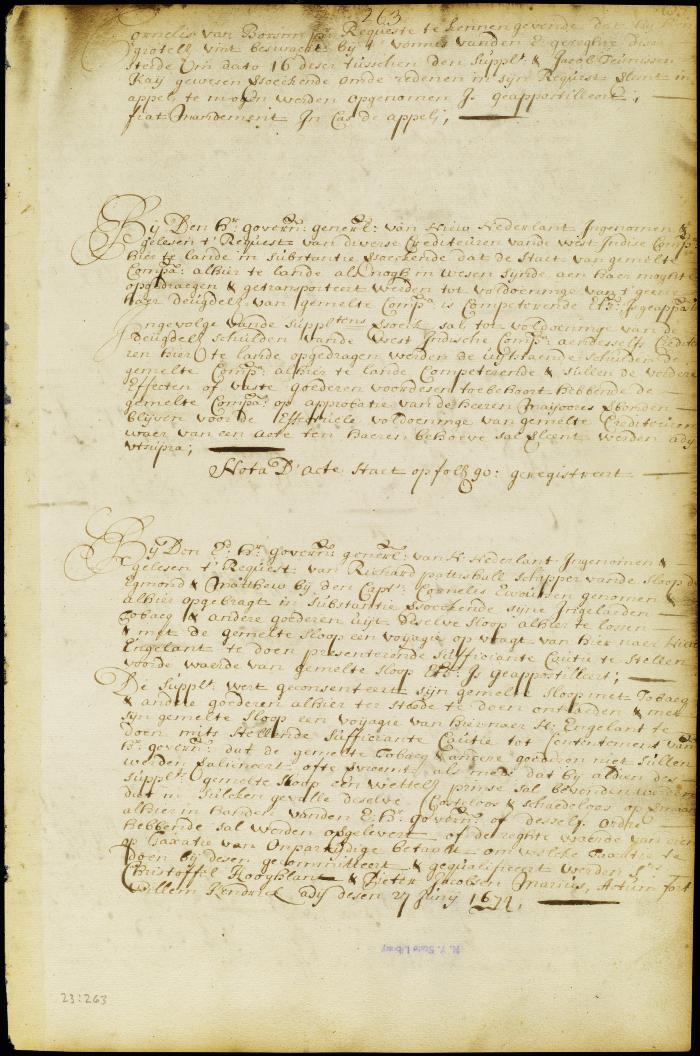 263
Cornelis van Borsum pr Requeste te kennen gevende dat hij
grotelx vint beswaert bij t vonnis vanden E: geregte deser
stede van dato 16 deser tusschen den Supplt & Jacob Teunissen
Kaij gewesen versoeckende omde redenen in sijn Request in
appel te mogen werden opgenomen Is geappostilleert;
fiat Mandement In Cas de appel;
Bij Den Hr governr generl: van Nieuw Nederlant Ingenomen &
gelesen t' Request van diverse Crediteuren vande West Indise Comp:
hier te lande in substantie versoeckende dat de Staet van gemelte
Compa: alhier te lande als nogh in wesen synde aen haer moght
opgedraegen & getransporteert werden tot voldoeninge van t' geene
haer deugdelx van gemelte Compa is Competerende Etc: Is geappost
Ingevolge vande Supplten versoeck sal tot voldoeninge van de
Deugdelx schulden vande West Indische Compa: aen desselfs Credito
ren hier te lande opgedragen werden de uijtstaende schulden de
gemelte Comp: alhier te lande Competerende & sullen de vordere
Effecten of vaste goederen voor desen toebehoort hebbende de
gemelte Compa: op approbatie van de heeren Maijoores verbonden
blijven voor de Effectuele voldoeninge van gemelte Crediteuren
waer van een Acte ten haeren behoeve sal verleent werden ady
utsupra;
Nota D' acte staet op folio 90: geregistreert
Bij Den E: Hr governr generl: van N: Nederlant Ingenomen &
gelesen t' Request van Richard pattishall schipper vande sloop d
Egmond & Matthew bij den Captn Cornelis Ewoutsen genomen &
alhier opgebragt in substantie versoeckende sijne Ingelanden
Tobacq & andere goederen uijt deselve sloop alhier te lossen
& met de gemelte sloop een voyagie op vragt van hier naer Nieu
Engelant te doen presenterende sufficiante Cautie te stellen
voor de waerde van gemelte sloop Etc: Is geappostilleert;
De Supplt wert geconsenteert sijn gemelte sloop met Tobacq
& andere goederen alhier ter stede te doen ontladen & met
sijn gemelte sloop een voyagie van hier naer N: Engelant te
doen mits stellende sufficiante Cautie tot Contentement van
Hr governr dat de gemelte Tobacq & andere goederen niet sullen
werden galieneert ofte vreemt als mede dat bij aldien des
Supplts gemelte sloop een wettelx prinse sal bevonden werden
dat in sulcken gevalle deselve Costeloos & schaedeloos op
alhier in handen vanden E: Hr governr of desselfs ordre
hebbende sal werden opgelevert of de regte waerde van dien
op Taxatie van Onpartijdige betaelt om welcke Taxatie te
doen bij desen gecommitteert & gequalificeert werden Srs
Christoffel Hooghlant & Pieter Jacobsen Marius, Actum fort
Willem Hendrick ady desen 27 Junij 1674,
N. Y. State Library
23:263